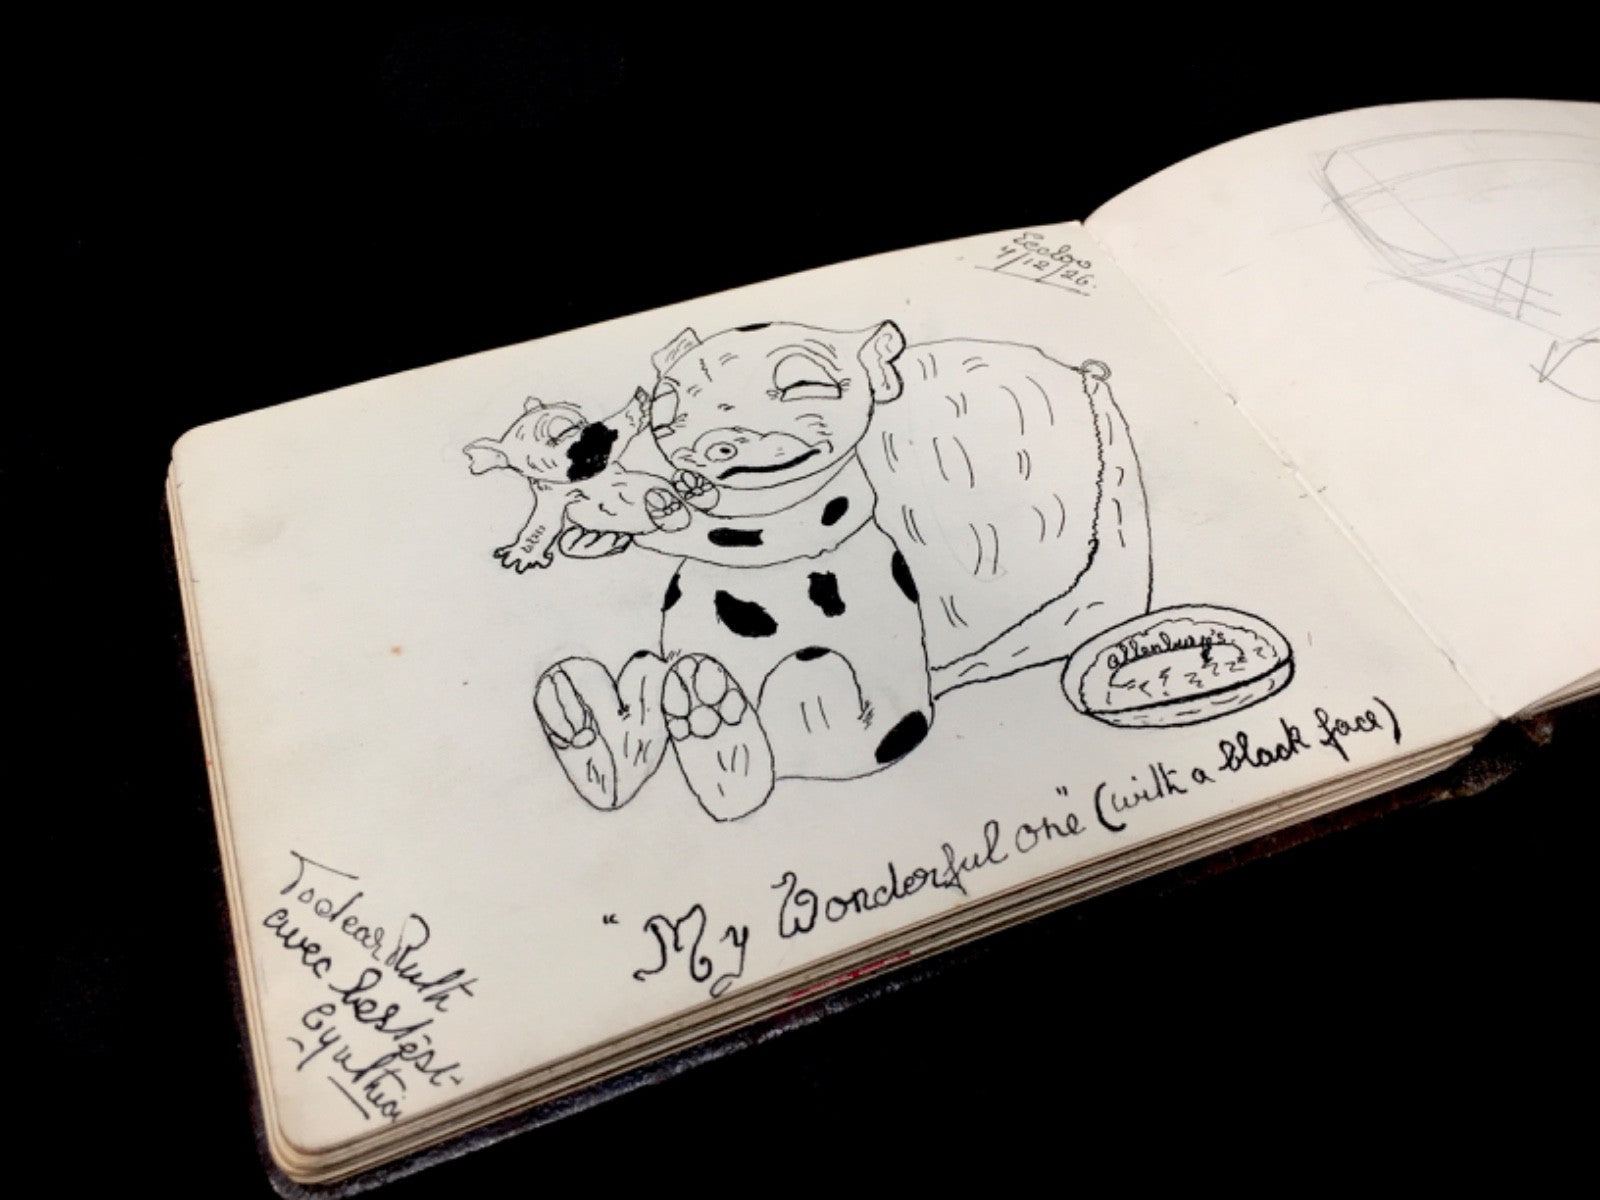 Eecloo
4/12/26.
allenburys.
"My Wonderful one" (with a black face)
To dear Ruth
avec bestest
Cynthia